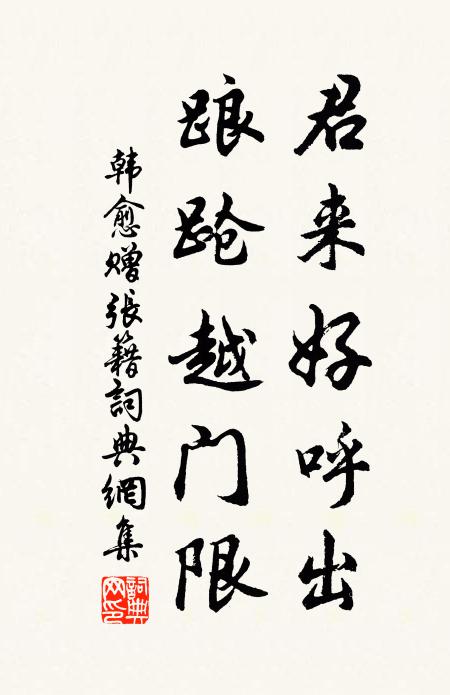 君来好呼出
踉跄越门限
韩愈赠張籍詞典網集
詞典网印